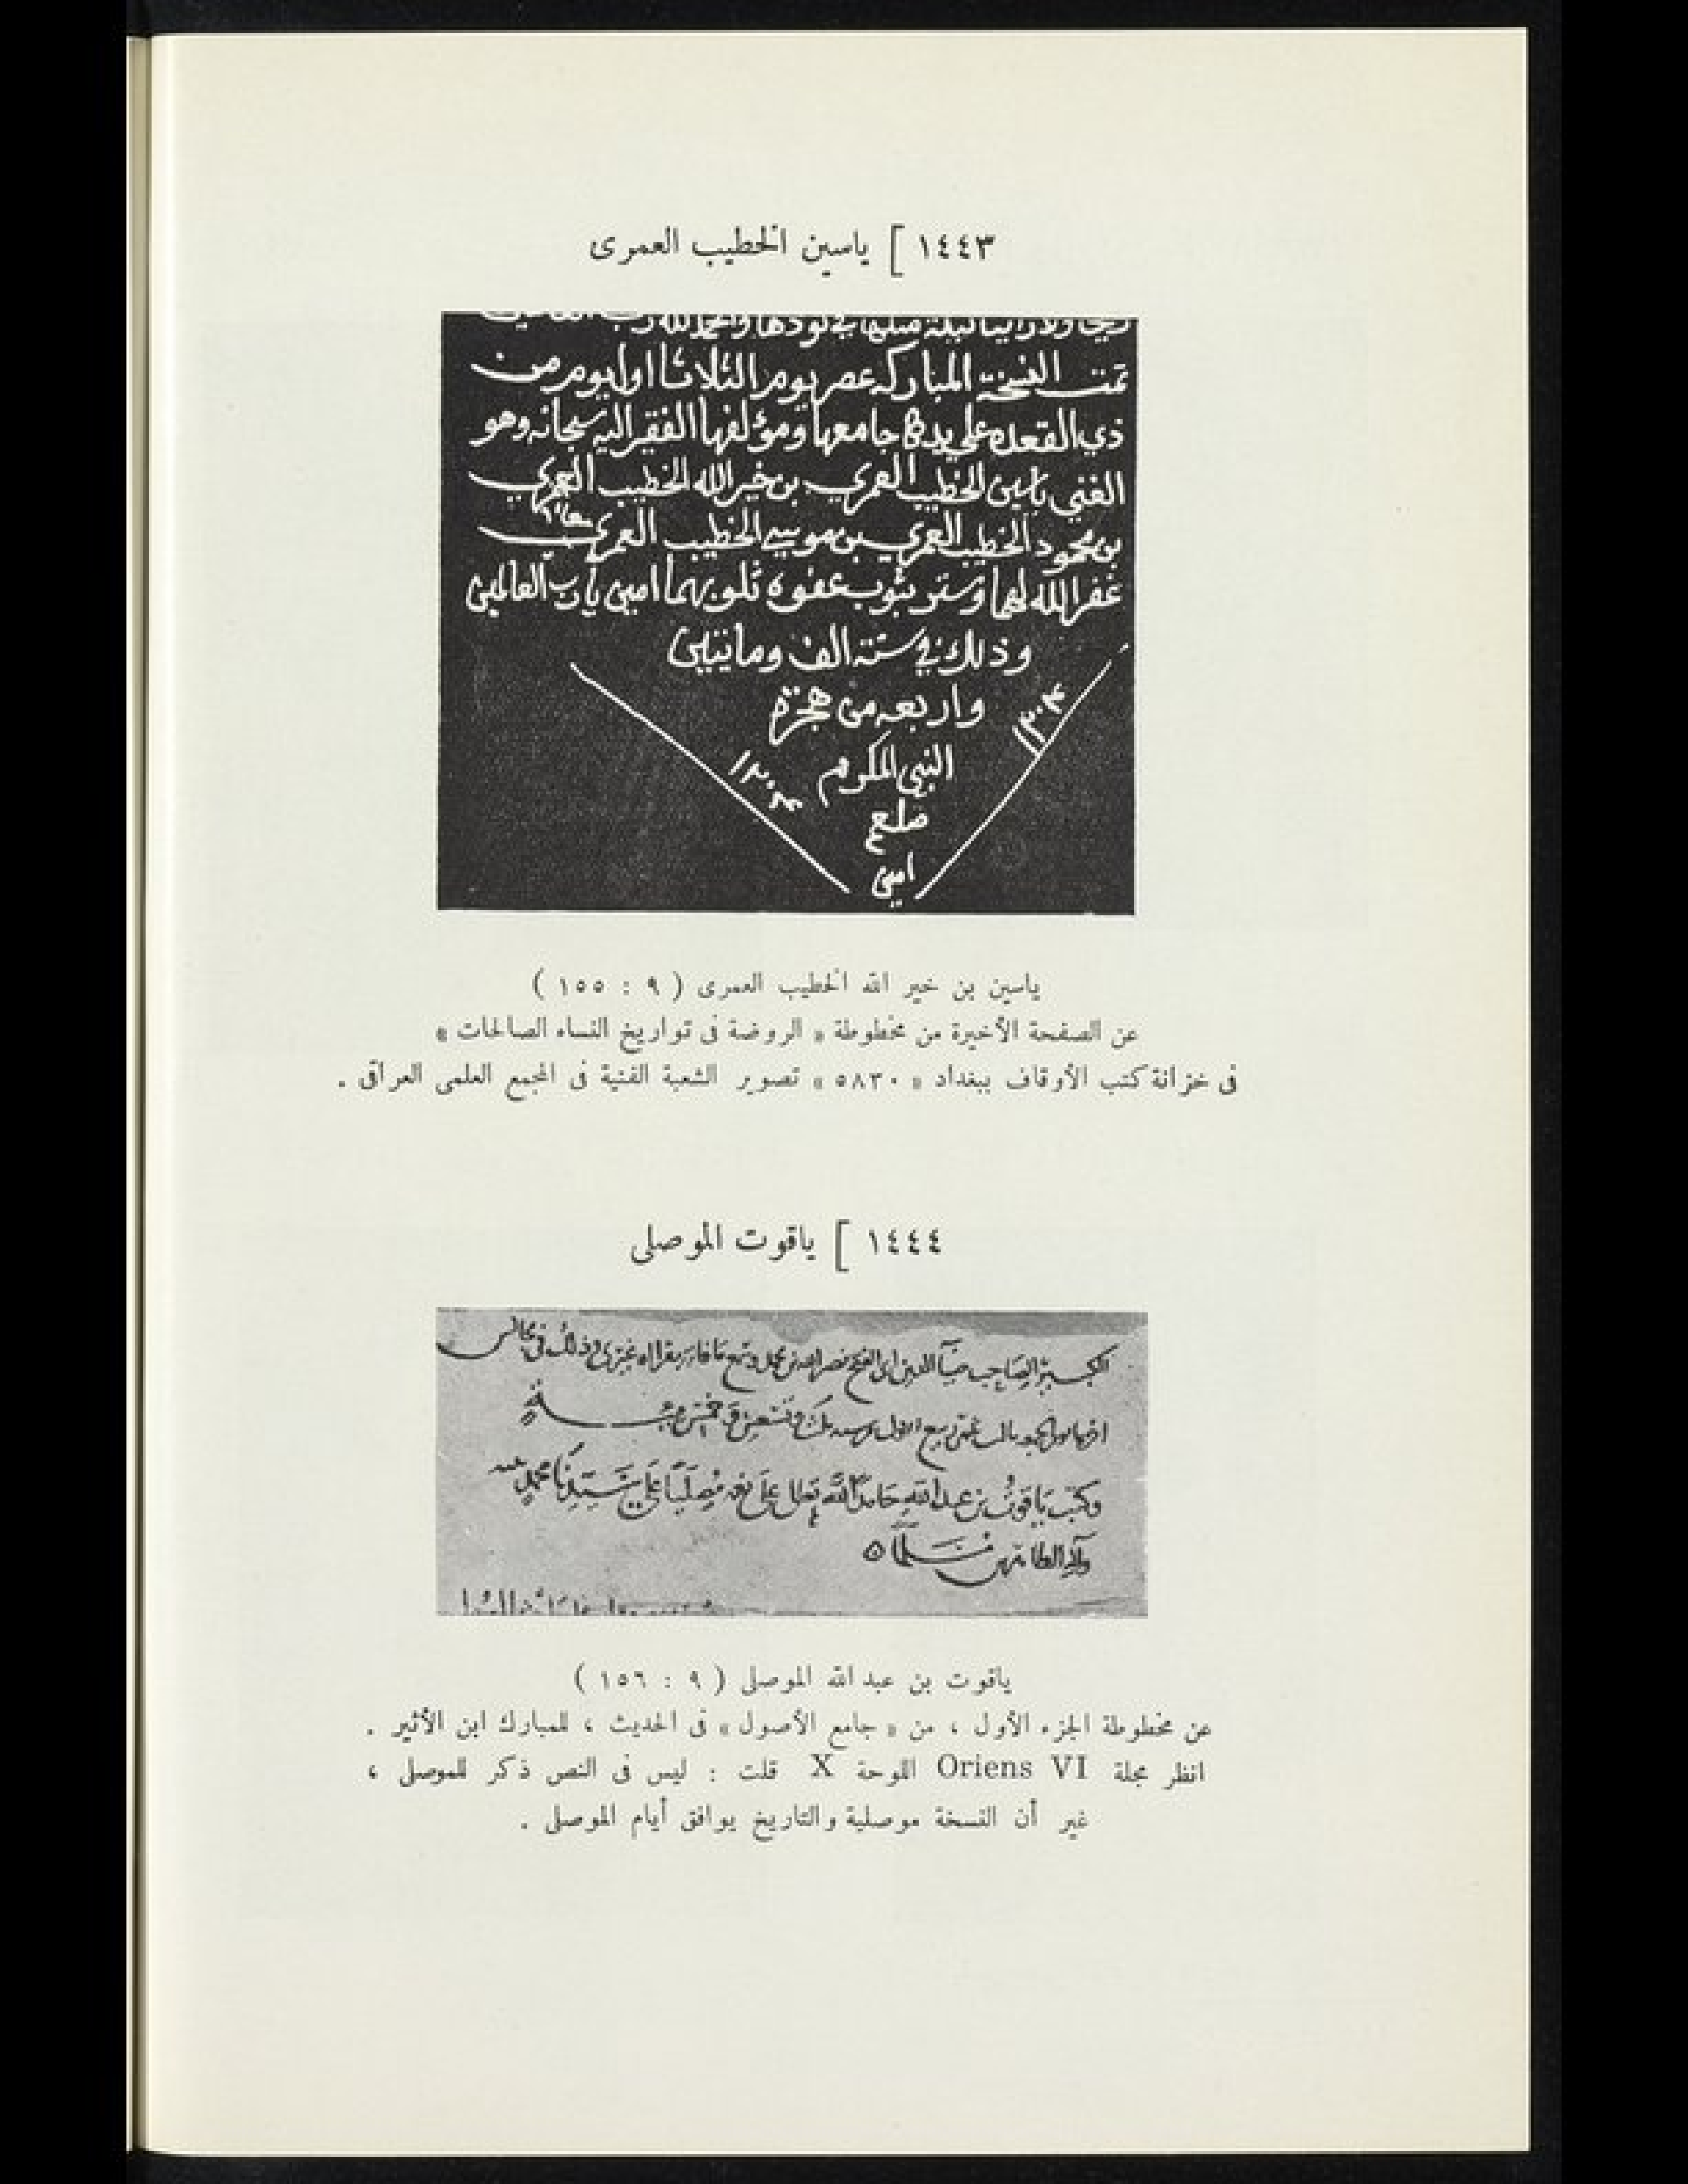 ١٤٤٣ [ ياسين الخطيب العمرى
تمت النسخة المباركه عصر يوم الثلاثا اول يوم من
ذي القعده على يد جامعها ومؤلفها الفقير اليه سبحانه وهو
الغني ياسين الخطيب العمري بن خير الله الخطيب العمري
بن محمود الخطيب العمري بن موسي الخطيب العمري
غفر الله لهما وستر بثوب عفوه امين يا رب العالمين
وذلك في سنة الف ومايتين
واربعه من هجرة
النبي المكرم
صلعم
امين
١٢٠٤
ياسين بن خير الله الخطيب العمرى ( ٩ : ١٥٥ )
عن الصفحة الأخيرة من مخطوطة « الروضة فى تواريخ النساء الصالحات »
فى خزانة كتب الأوقاف ببغداد « ٥٨٣٠ » تصوير الشعبة الفنية فى المجمع العلمى العراقى .
١٤٤٤ [ ياقوت الموصلى
الصاحب ضيآ الدين ابى الفتح نصر الله بن محمد وذلك فى مجالس
ربيع الاول
وكتب ياقوت بن عبد الله حامدا لله تعالى على نعمه ومصليا على سيدنا محمد
وآله الطاهرين ومسلما
ياقوت بن عبد الله الموصلى ( ٩ : ١٥٦ )
عن مخطوطة الجزء الأول ، من « جامع الأصول » فى الحديث ، للمبارك ابن الأثير .
انظر مجلة Oriens VI اللوحة X قلت : ليس فى النص ذكر للموصلى ،
غير أن النسخة موصلية والتاريخ يوافق أيام الموصلى .